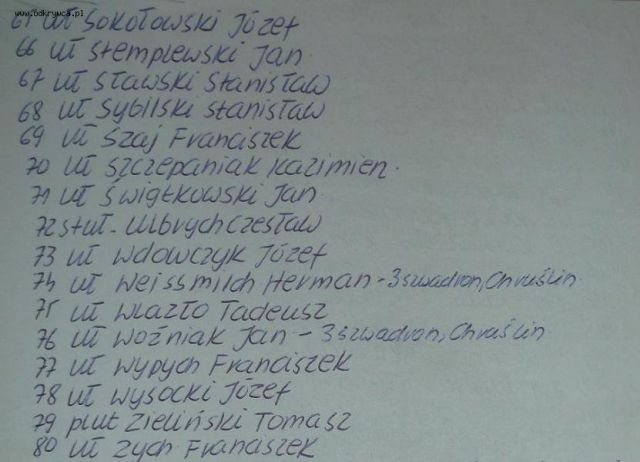 www.odkrywca.pl
65 uł Sokołowski Józef
66 uł Stemplewski Jan
67 uł Stawski Stanisław
68 uł Sybilski Stanisław
69 uł Szaj Franciszek
70 uł Szczepaniak Kazimierz
71 uł Świątkowski Jan
72 stuł. Ulbrych Czesław
73 uł Wdowczyk Józef
74 uł Weissmilch Herman - 3 szwadron, Chruślin
75 uł Wlazło Tadeusz
76 uł Woźniak Jan - 3 szwadron, Chruślin
77 uł Wypych Franciszek
78 uł Wysocki Józef
79 plut Zieliński Tomasz
80 uł Zych Franciszek